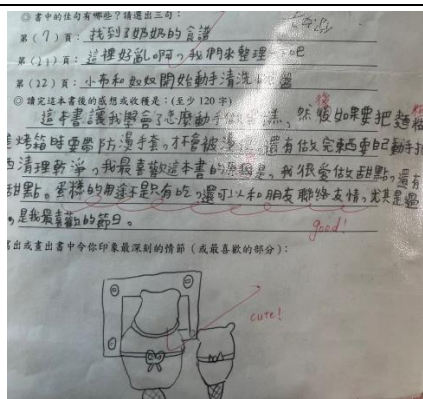 ◎書中的佳句有哪些?請選出三句:
第(7)頁:找到了奶奶的食譜
第(21)頁:這裡好亂啊,我們來整理一下吧
第(22)頁:小布和奴奴開始動手清洗
◎請完這本書後的感想或收穫是:(至少120字)
這本書讓我學會了怎麼動手做蛋糕、然後如果要把麵糊
進烤箱時要帶防漫手套,才不會被漫 還有做完東西要自己動手把
西清理乾淨,我最喜歡這本書的原因是,我很愛做甜點。還有
甜點。蛋糕的用途不是只有吃,還可以和朋友聯絡友情。尤其是過
,是我最喜歡的節日。
good!
寫出或畫出書中令你印象最深刻的情節(或最喜歡的部分):
cute!